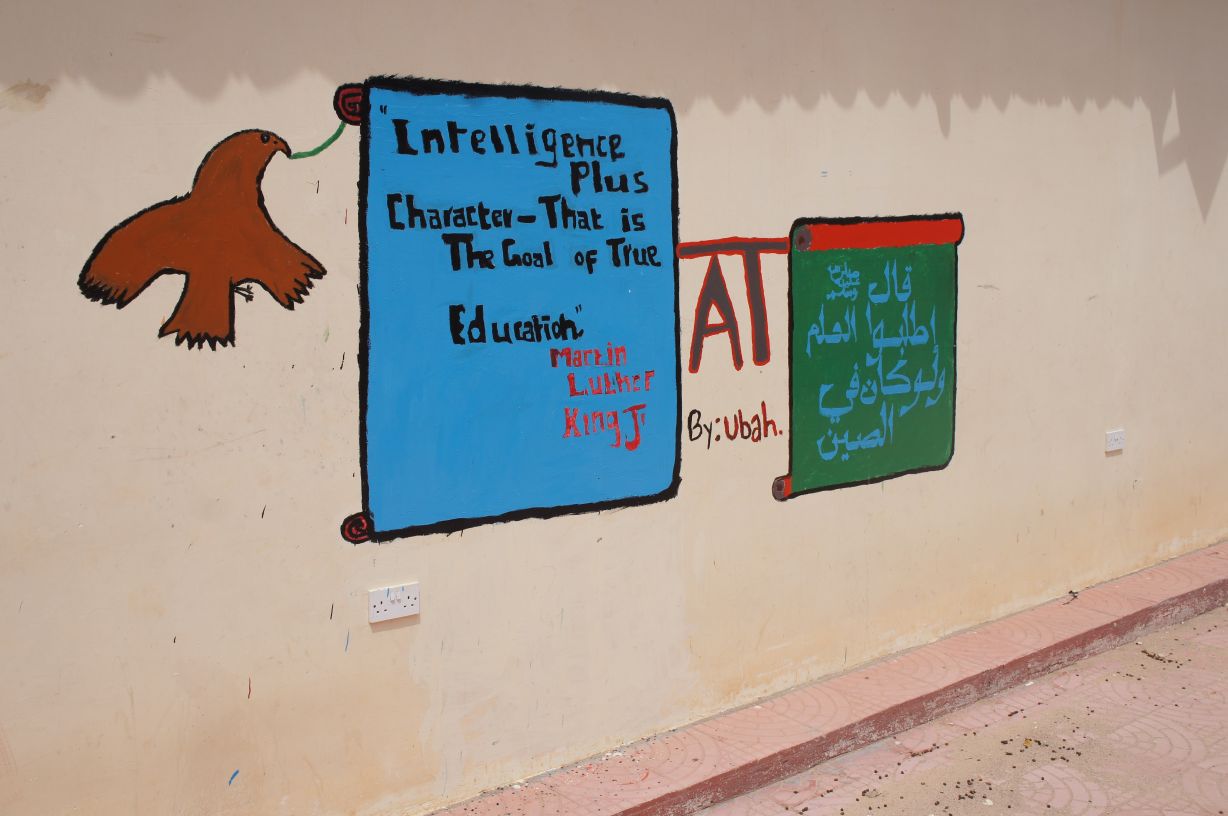 "Intelligence
Plus
Character-That is
The Goal of True
Education"
Martin
Luther
King Jr
AT
By: Ubah.
قال صلى الله عليه وسلم
اطلبوا العلم
ولو كان في
الصين